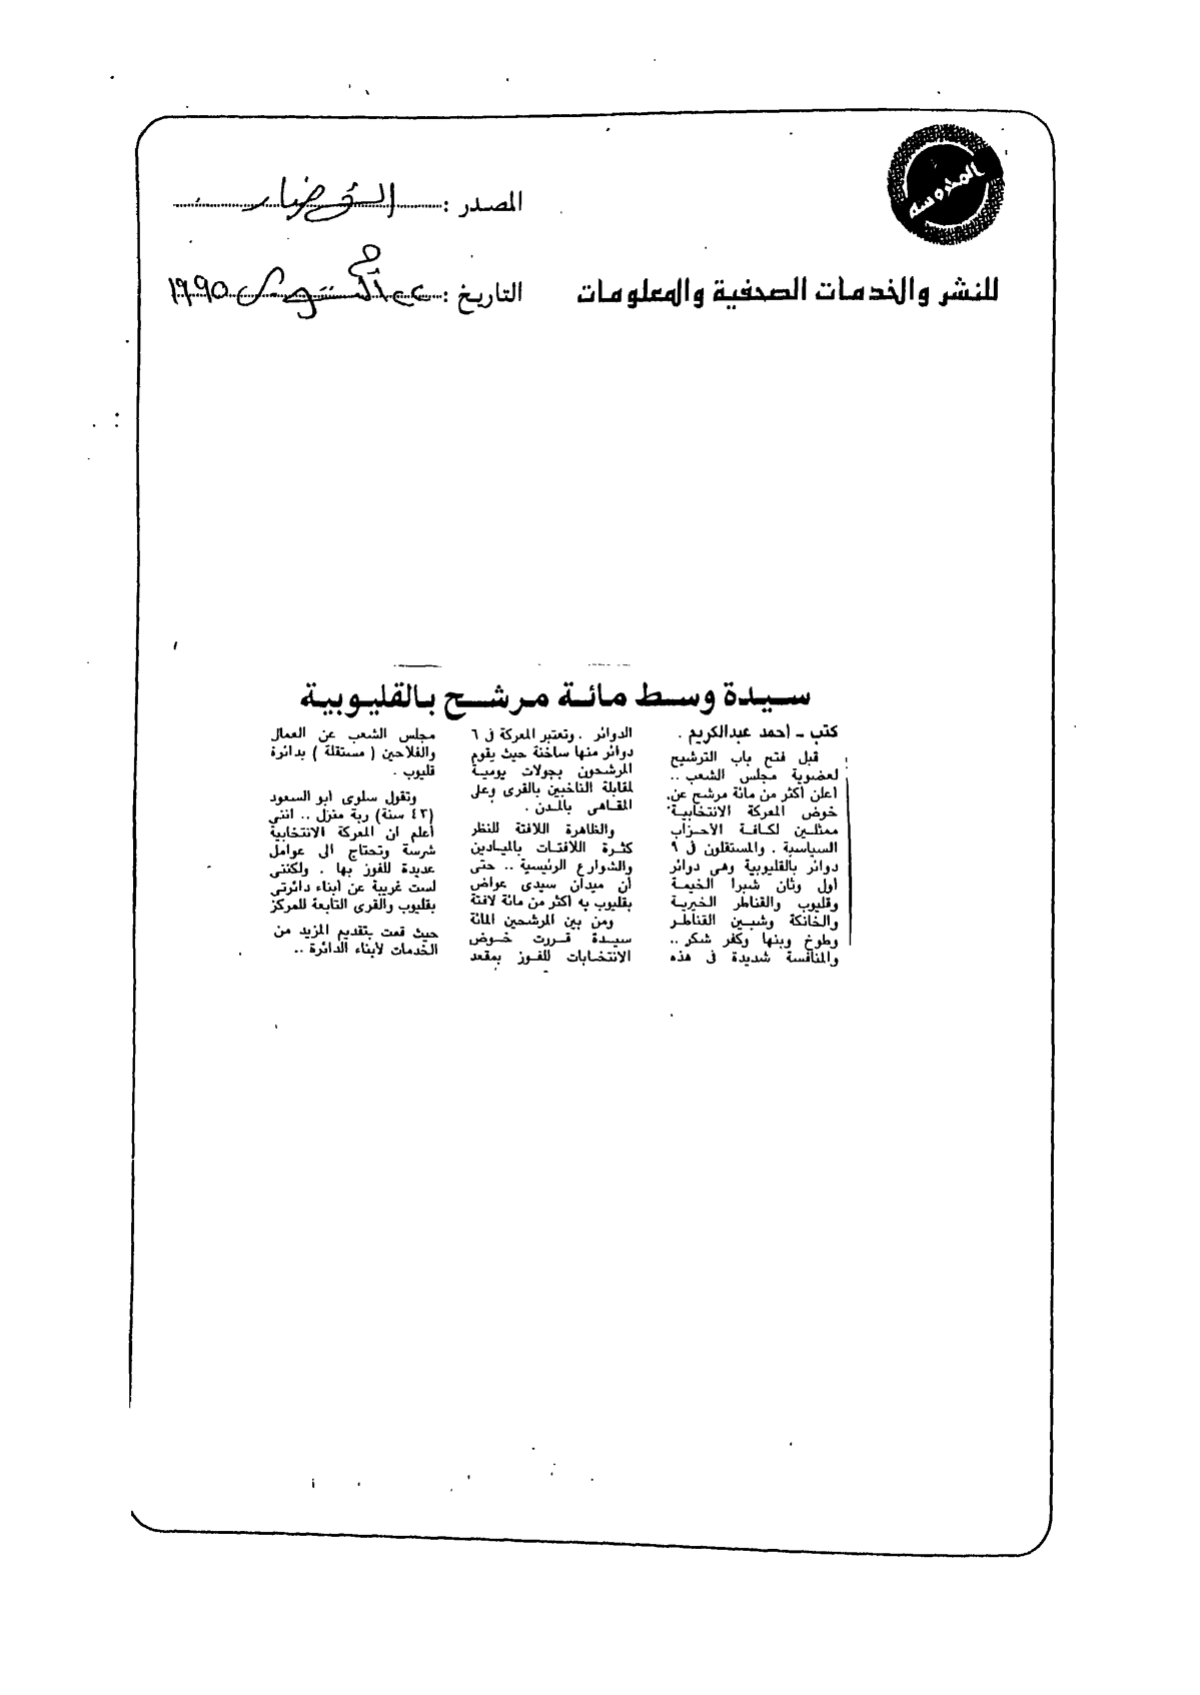 المحروسه
المصدر : الأخبار
للنشر والخدمات الصحفية والمعلومات
التاريخ : ٢٢ أكتوبر ١٩٩٥
سيدة وسط مائة مرشح بالقليوبية
كتب - احمد عبدالكريم .
قبل فتح باب الترشيح
لعضوية مجلس الشعب ..
اعلن اكثر من مائة مرشح عن
خوض المعركة الانتخابية
ممثلين لكافة الاحزاب
السياسية . والمستقلون فى ٩
دوائر بالقليوبية وهى دوائر
أول وثان شبرا الخيمة
وقليوب والقناطر الخيرية
والخانكة وشبين القناطر
وطوخ وبنها وكفر شكر ..
والمنافسة شديدة فى هذه
الدوائر . وتعتبر المعركة فى ٦
دوائر منها ساخنة حيث يقوم
المرشحون بجولات يومية
لمقابلة الناخبين بالقرى وعلى
المقاهى بالمدن .
والظاهرة اللافتة للنظر
كثرة اللافتات بالميادين
والشوارع الرئيسية .. حتى
أن ميدان سيدى عواض
بقليوب به اكثر من مائة لافتة
ومن بين المرشحين المائة
سيدة قررت خوض
الانتخابات للفوز بمقعد
مجلس الشعب عن العمال
والفلاحين ( مستقلة ) بدائرة
قليوب .
وتقول سلوى ابو السعود
(٤٣ سنة) ربة منزل .. اننى
أعلم ان المعركة الانتخابية
شرسة وتحتاج الى عوامل
عديدة للفوز بها . ولكننى
لست غريبة عن أبناء دائرتى
بقليوب والقرى التابعة للمركز
حيث قمت بتقديم المزيد من
الخدمات لأبناء الدائرة ..